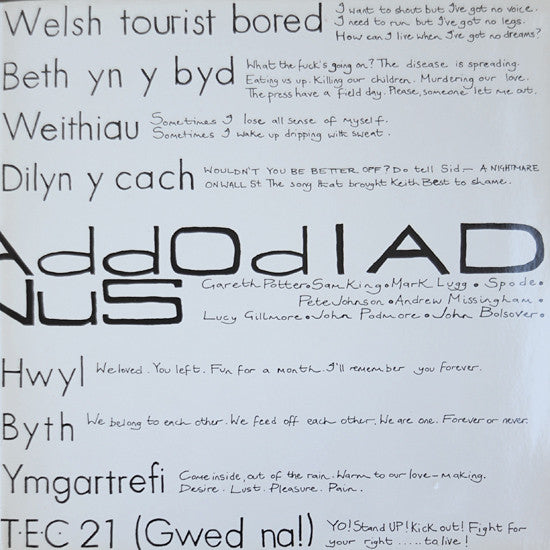 Welsh tourist bored
I want to shout but I've got no voice.
I need to run but I've got no legs.
How can I live when I've got no dreams?
Beth yn y byd
What the fuck's going on? The disease is spreading.
Eating us up. Killing our children. Murdering our love.
The press have a field day. Please, someone let me out.
Weithiau
Sometimes I lose all sense of myself.
Sometimes I wake up dripping with sweat.
Dilyn y cach
WOULDN'T YOU BE BETTER OFF? Do tell Sid — A NIGHTMARE
ON WALL St The song that brought Keith Best to shame.
AddOdIAD
NuS
Gareth Potter • Sam King • Mark Lugg • Spode •
Pete Johnson • Andrew Missingham •
Lucy Gillmore • John Podmore • John Bolsover •
Hwyl
We loved. You left. Fun for a month. I'll remember you forever.
Byth
We belong to each other. We feed off each other. We are one. Forever or never.
Ymgartrefi
Come inside, out of the rain. Warm to our love-making.
Desire. Lust. Pleasure. Pain.
T.E.C 21 (Gwed na!)
YO! Stand UP! Kick out! Fight for
your right ..... to live!